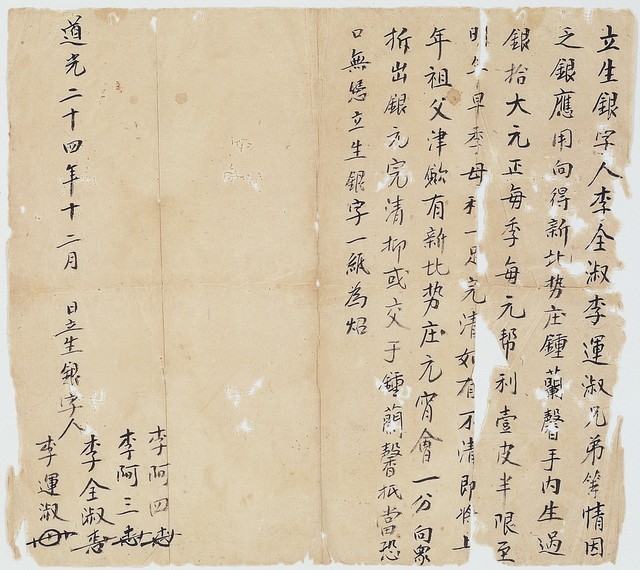 立生銀字人李全淑李運淑兄弟等情因
乏銀應用向得新北势庄鍾蘭馨手内生過
銀拾大元正每季每元帮利壹皮半限至
明年早季母利一足完清如有不清即將上
年祖父津歛有新北势庄元宵會一分向衆
拆出銀元完清抑或交于鍾蘭馨抵當恐
口無憑立生銀字一紙為炤
道光二十四年十二月 日立生銀字人
李阿四
李阿三
李全淑
李運淑